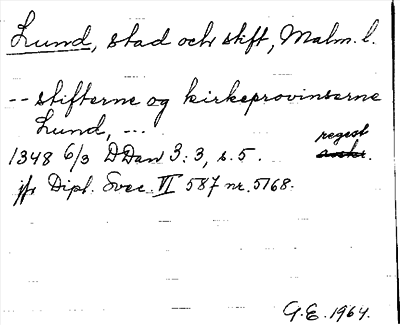 Lund, stad och stift, Malm. l.
-- stifterne og kirkeprovinserne
Lund, -..
regest
1348 6/3 DDan 3:3, s. 5.
jfr Dipl. Svec. VI 587 nr. 5168.
G.E. 1964.